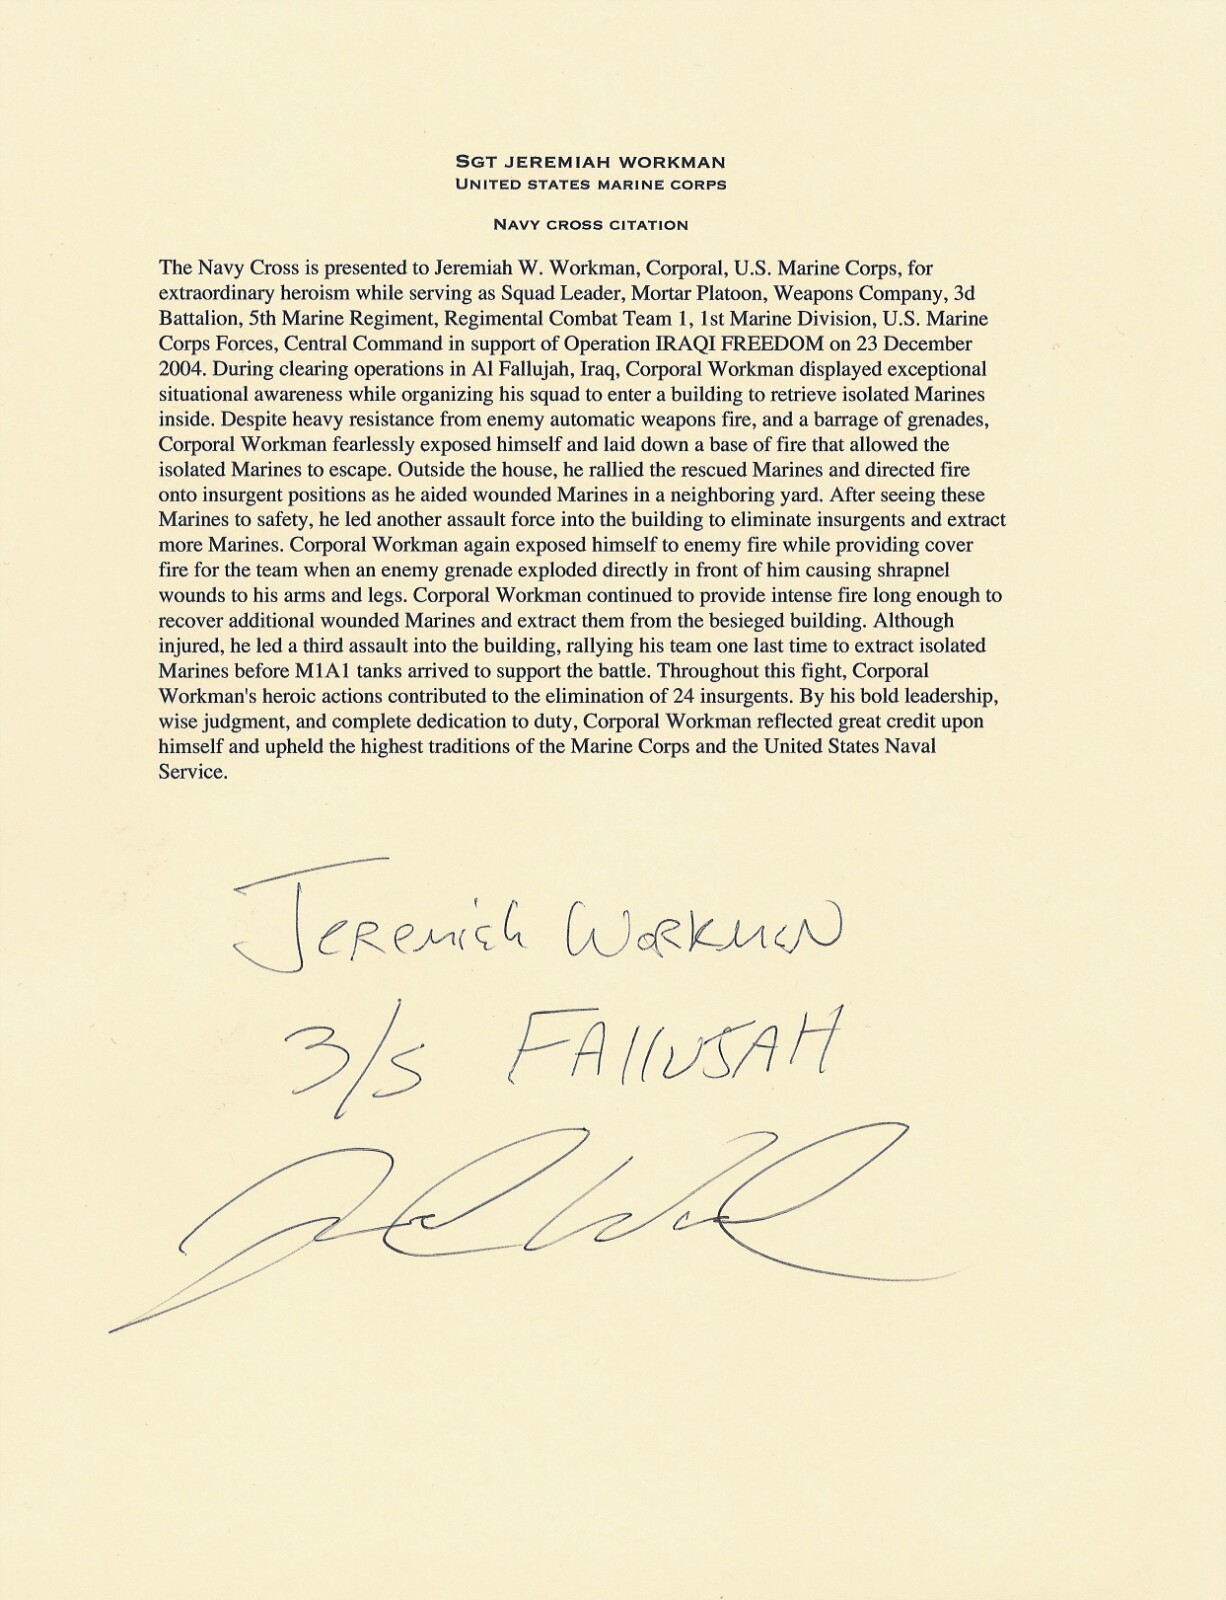 SGT JEREMIAH WORKMAN
UNITED STATES MARINE CORPS
NAVY CROSS CITATION
The Navy Cross is presented to Jeremiah W. Workman, Corporal, U.S. Marine Corps, for
extraordinary heroism while serving as Squad Leader, Mortar Platoon, Weapons Company, 3d
Battalion, 5th Marine Regiment, Regimental Combat Team 1, 1st Marine Division, U.S. Marine
Corps Forces, Central Command in support of Operation IRAQI FREEDOM on 23 December
2004. During clearing operations in Al Fallujah, Iraq, Corporal Workman displayed exceptional
situational awareness while organizing his squad to enter a building to retrieve isolated Marines
inside. Despite heavy resistance from enemy automatic weapons fire, and a barrage of grenades,
Corporal Workman fearlessly exposed himself and laid down a base of fire that allowed the
isolated Marines to escape. Outside the house, he rallied the rescued Marines and directed fire
onto insurgent positions as he aided wounded Marines in a neighboring yard. After seeing these
Marines to safety, he led another assault force into the building to eliminate insurgents and extract
more Marines. Corporal Workman again exposed himself to enemy fire while providing cover
fire for the team when an enemy grenade exploded directly in front of him causing shrapnel
wounds to his arms and legs. Corporal Workman continued to provide intense fire long enough to
recover additional wounded Marines and extract them from the besieged building. Although
injured, he led a third assault into the building, rallying his team one last time to extract isolated
Marines before M1A1 tanks arrived to support the battle. Throughout this fight, Corporal
Workman's heroic actions contributed to the elimination of 24 insurgents. By his bold leadership,
wise judgment, and complete dedication to duty, Corporal Workman reflected great credit upon
himself and upheld the highest traditions of the Marine Corps and the United States Naval
Service.
Jeremiah Workman
3/5 FAllUJAH